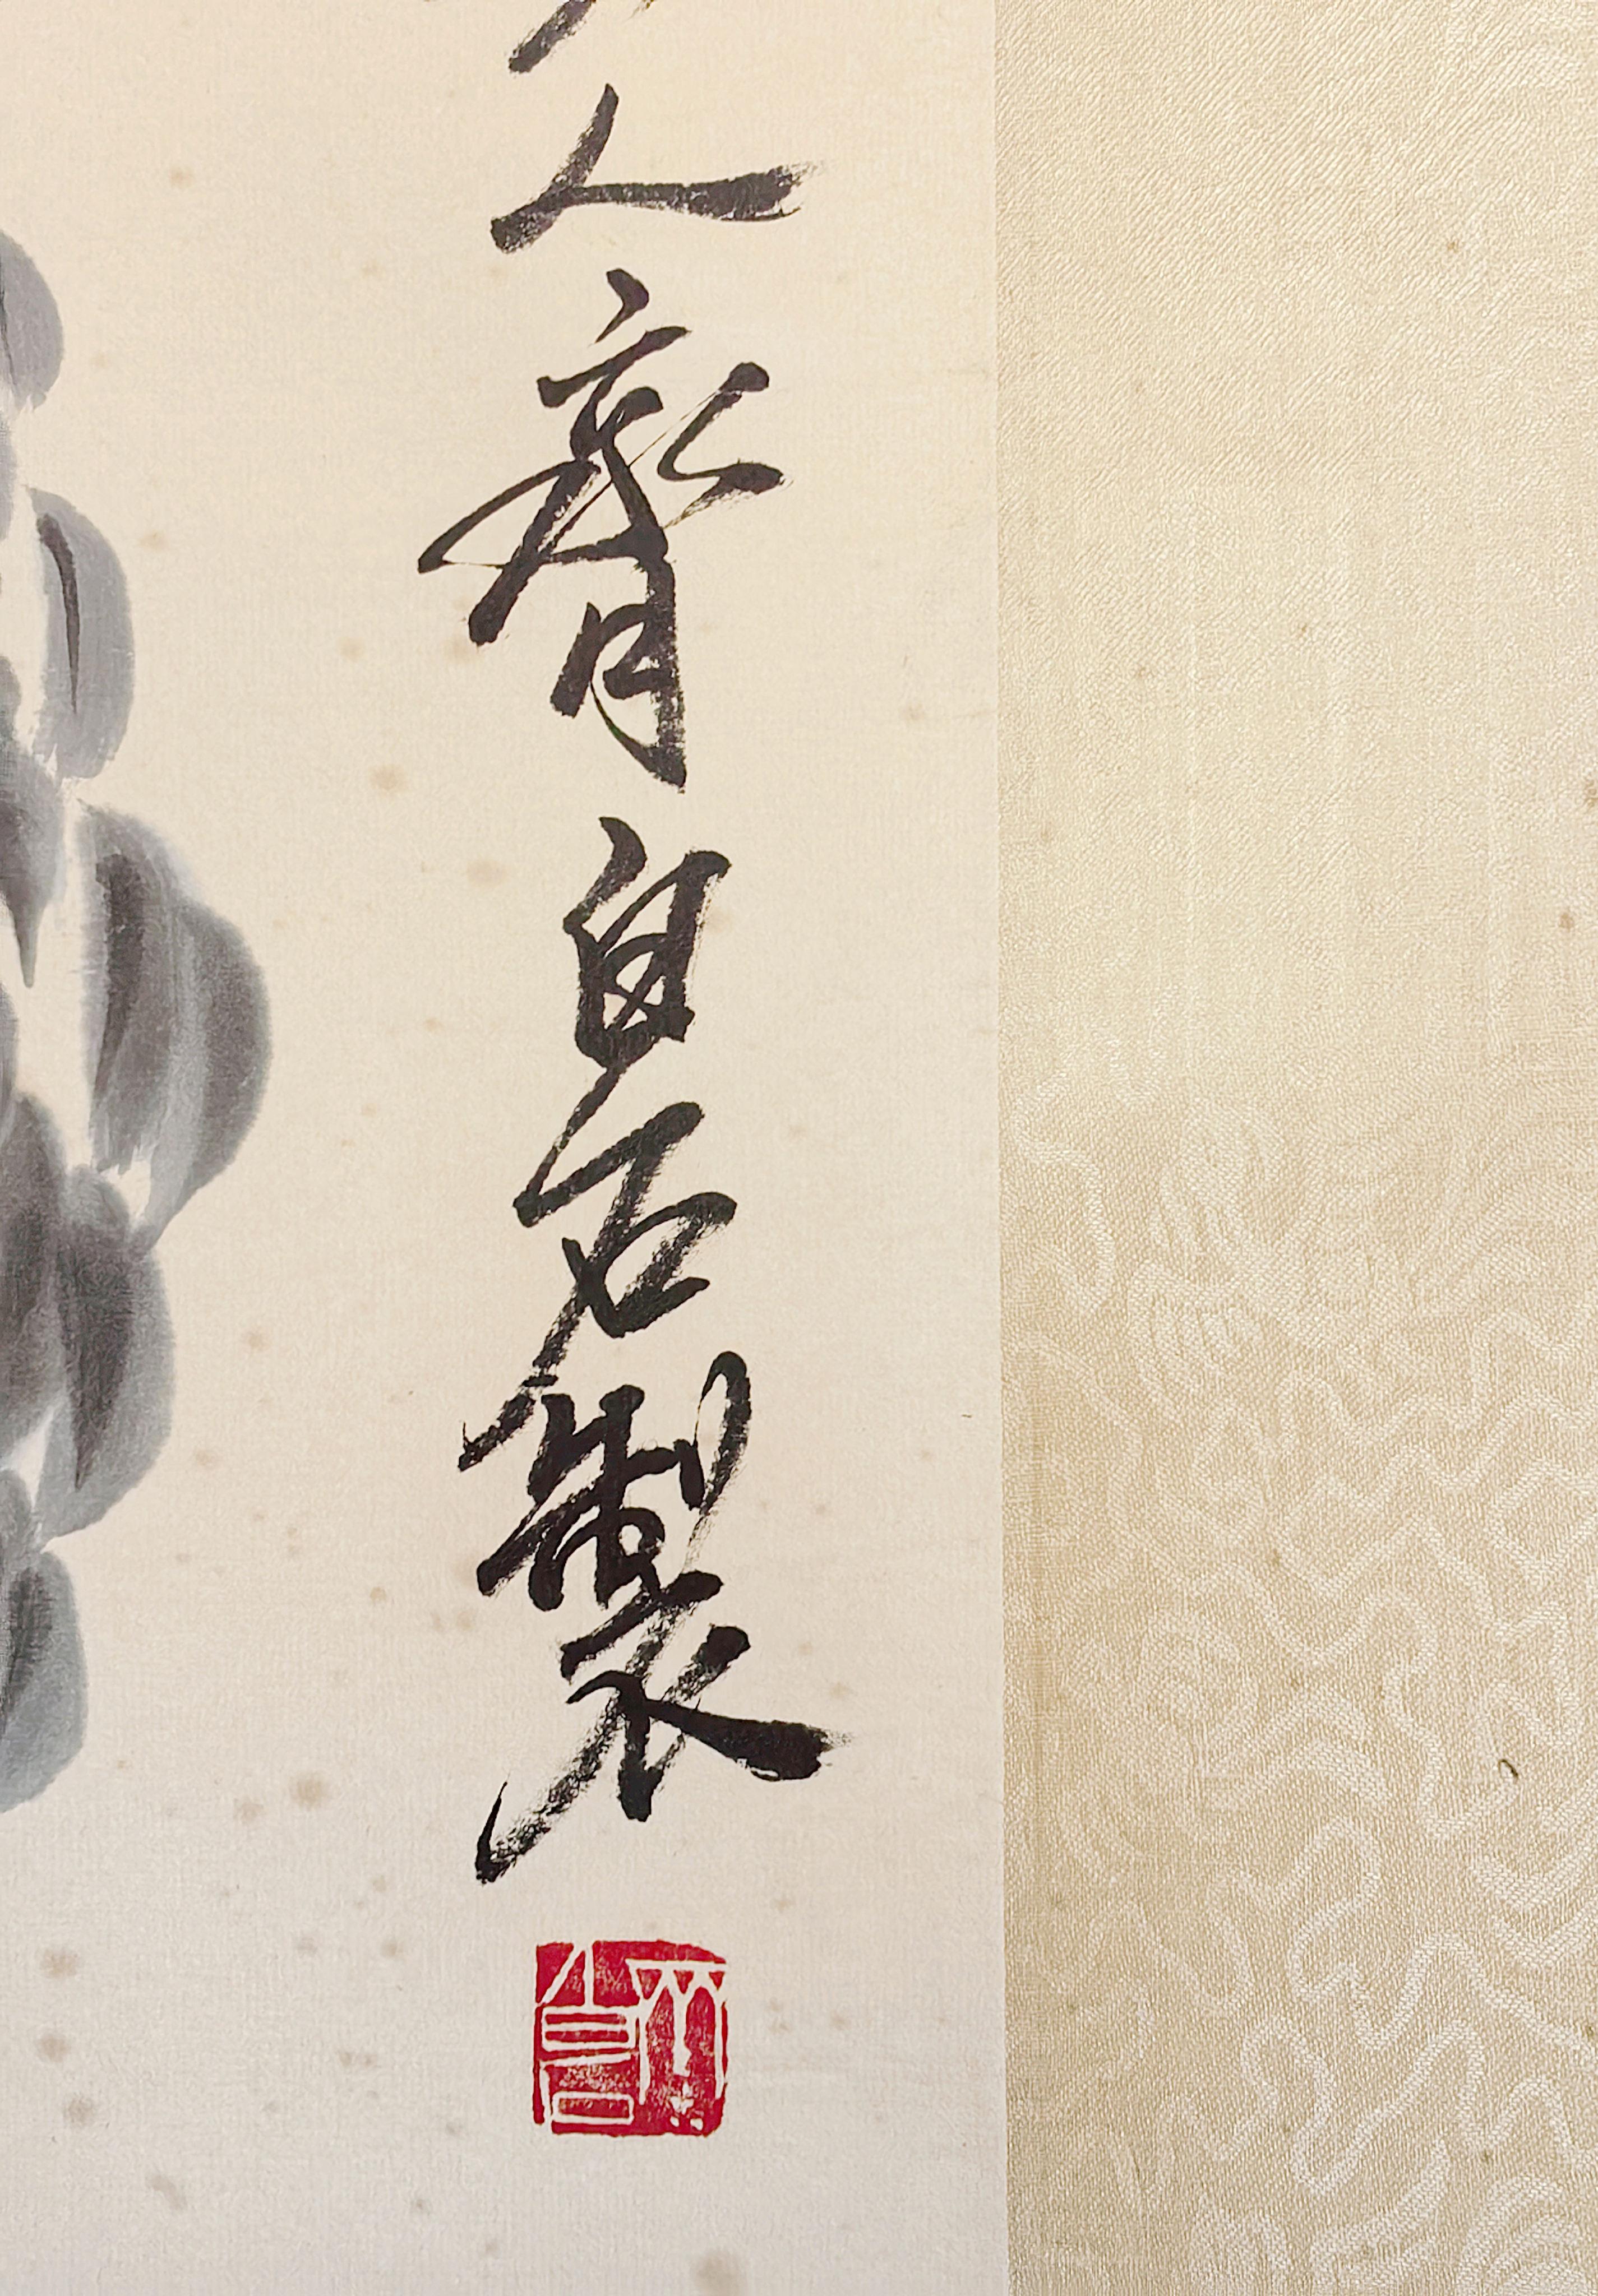 人齊白石製
齊白石